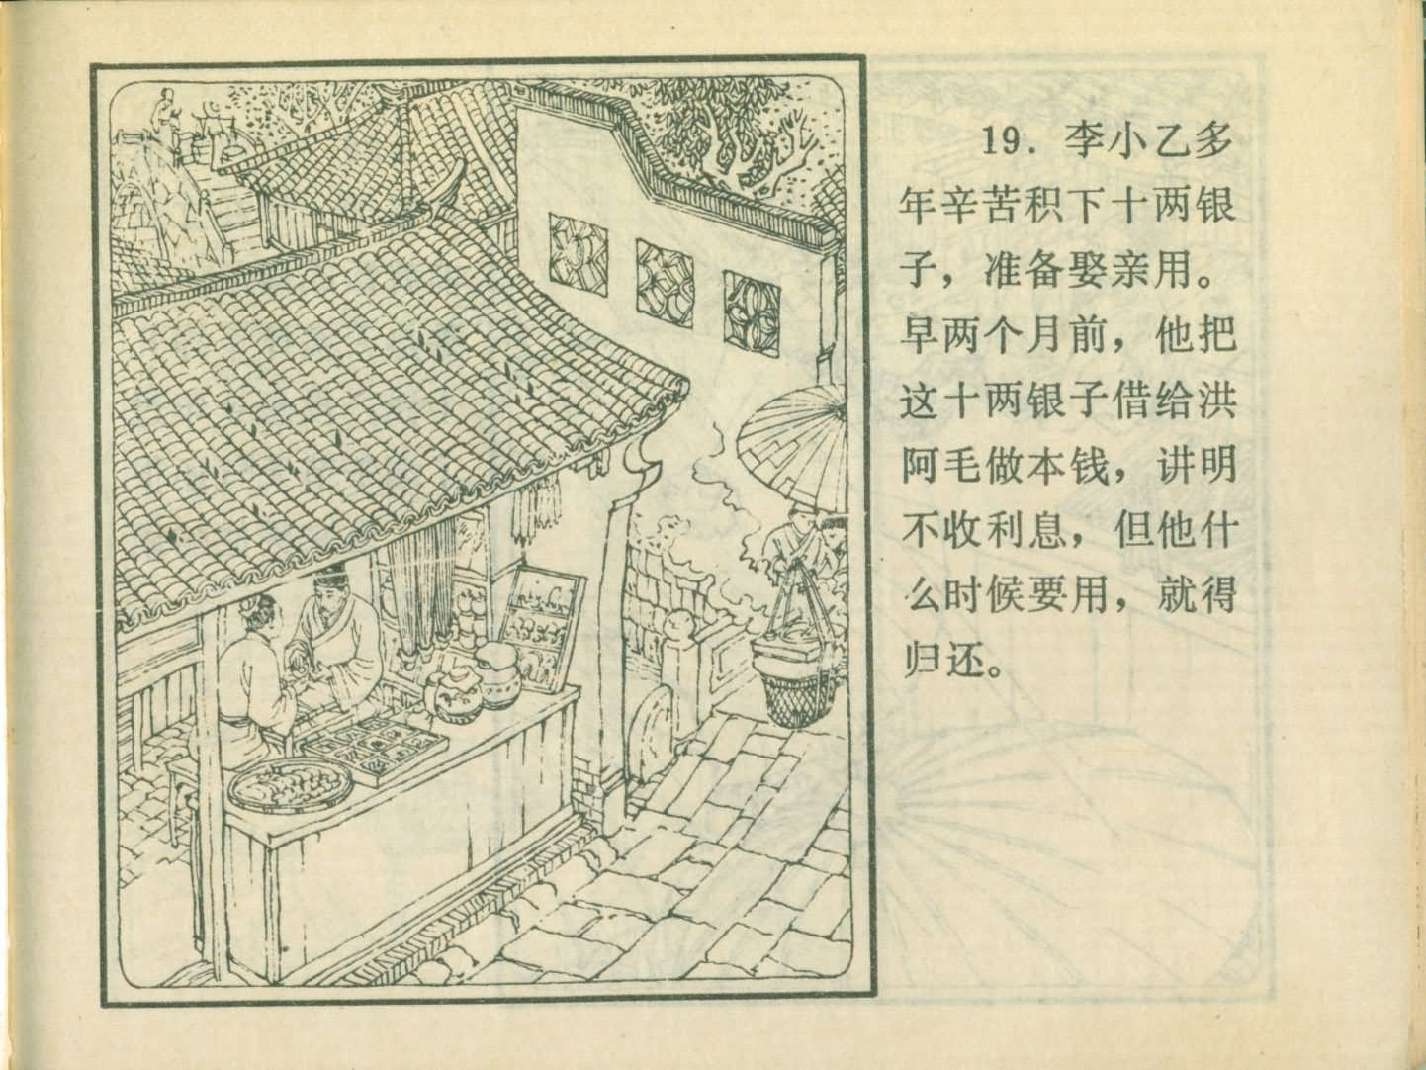 19. 李小乙多
年辛苦积下十两银
子，准备娶亲用。
早两个月前，他把
这十两银子借给洪
阿毛做本钱，讲明
不收利息，但他什
么时候要用，就得
归还。